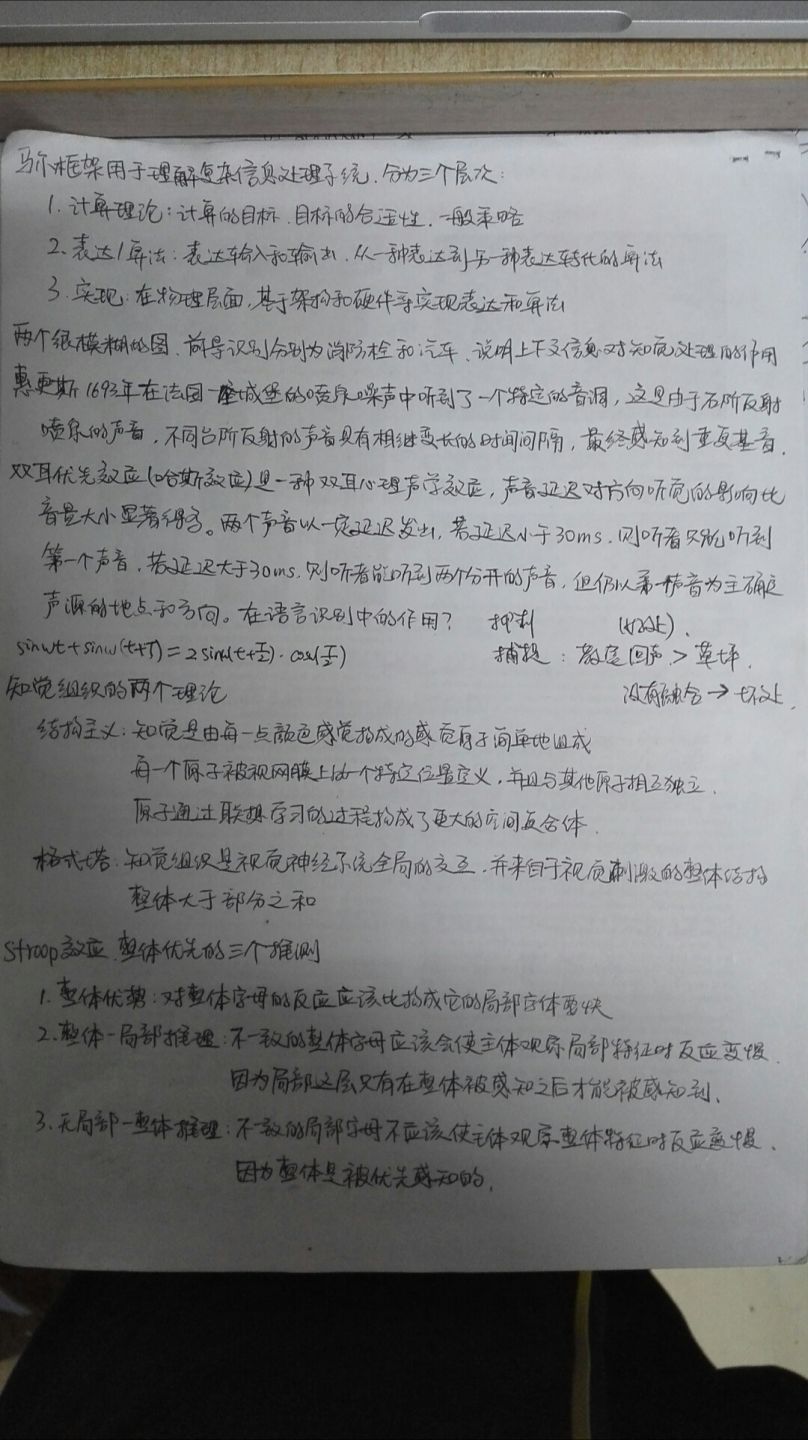 马尔框架用于理解复杂信息处理系统,分为三个层次:
1. 计算理论:计算的目标、目标的合适性、一般策略
2. 表达/算法:表达输入和输出,从一种表达到另一种表达转化的算法
3. 实现:在物理层面,基于架构和硬件等实现表达和算法
两个很模糊的图,前导识别分别为消防栓和汽车,说明上下文信息对知觉处理的作用
惠更斯1693年在法国一座城堡的喷泉噪声中听到了一个特定的音调,这是由于石阶反射
喷泉的声音,不同台阶反射的声音具有相继变长的时间间隔,最终感知到重复基音.
双耳优先效应(哈斯效应)是一种双耳心理声学效应,声音延迟对方向听觉的影响比
音量大小显著得多。两个声音以一定延迟发出,若延迟小于30ms,则听者只能听到
第一个声音,若延迟大于30ms,则听者能听到两个分开的声音,但仍以第一声音为主确定
声源的地点和方向。在语言识别中的作用? 抑制 (好处).
sinwt+sinw(t+T)=2sinw(t+T/2)·cos(T/2) 捕捉:教室回声>草坪.
知觉组织的两个理论 没有融合→坏处.
结构主义:知觉是由每一点颜色感觉构成的感觉原子简单地组成
每一个原子被视网膜上的一个特定位置定义,并且与其他原子相互独立.
原子通过联想学习的过程构成了更大的空间复合体.
格式塔:知觉组织是视觉神经系统全局的交互,并来自于视觉刺激的整体结构
整体大于部分之和
Stroop效应,整体优先的三个推测
1. 整体优势:对整体字母的反应应该比构成它的局部字体要快
2. 整体-局部推理:不一致的整体字母应该会使主体观察局部特征时反应变慢.
因为局部这层只有在整体被感知之后才能被感知到.
3. 无局部-整体推理:不一致的局部字母不应该使主体观察整体特征时反应变慢.
因为整体是被优先感知的.